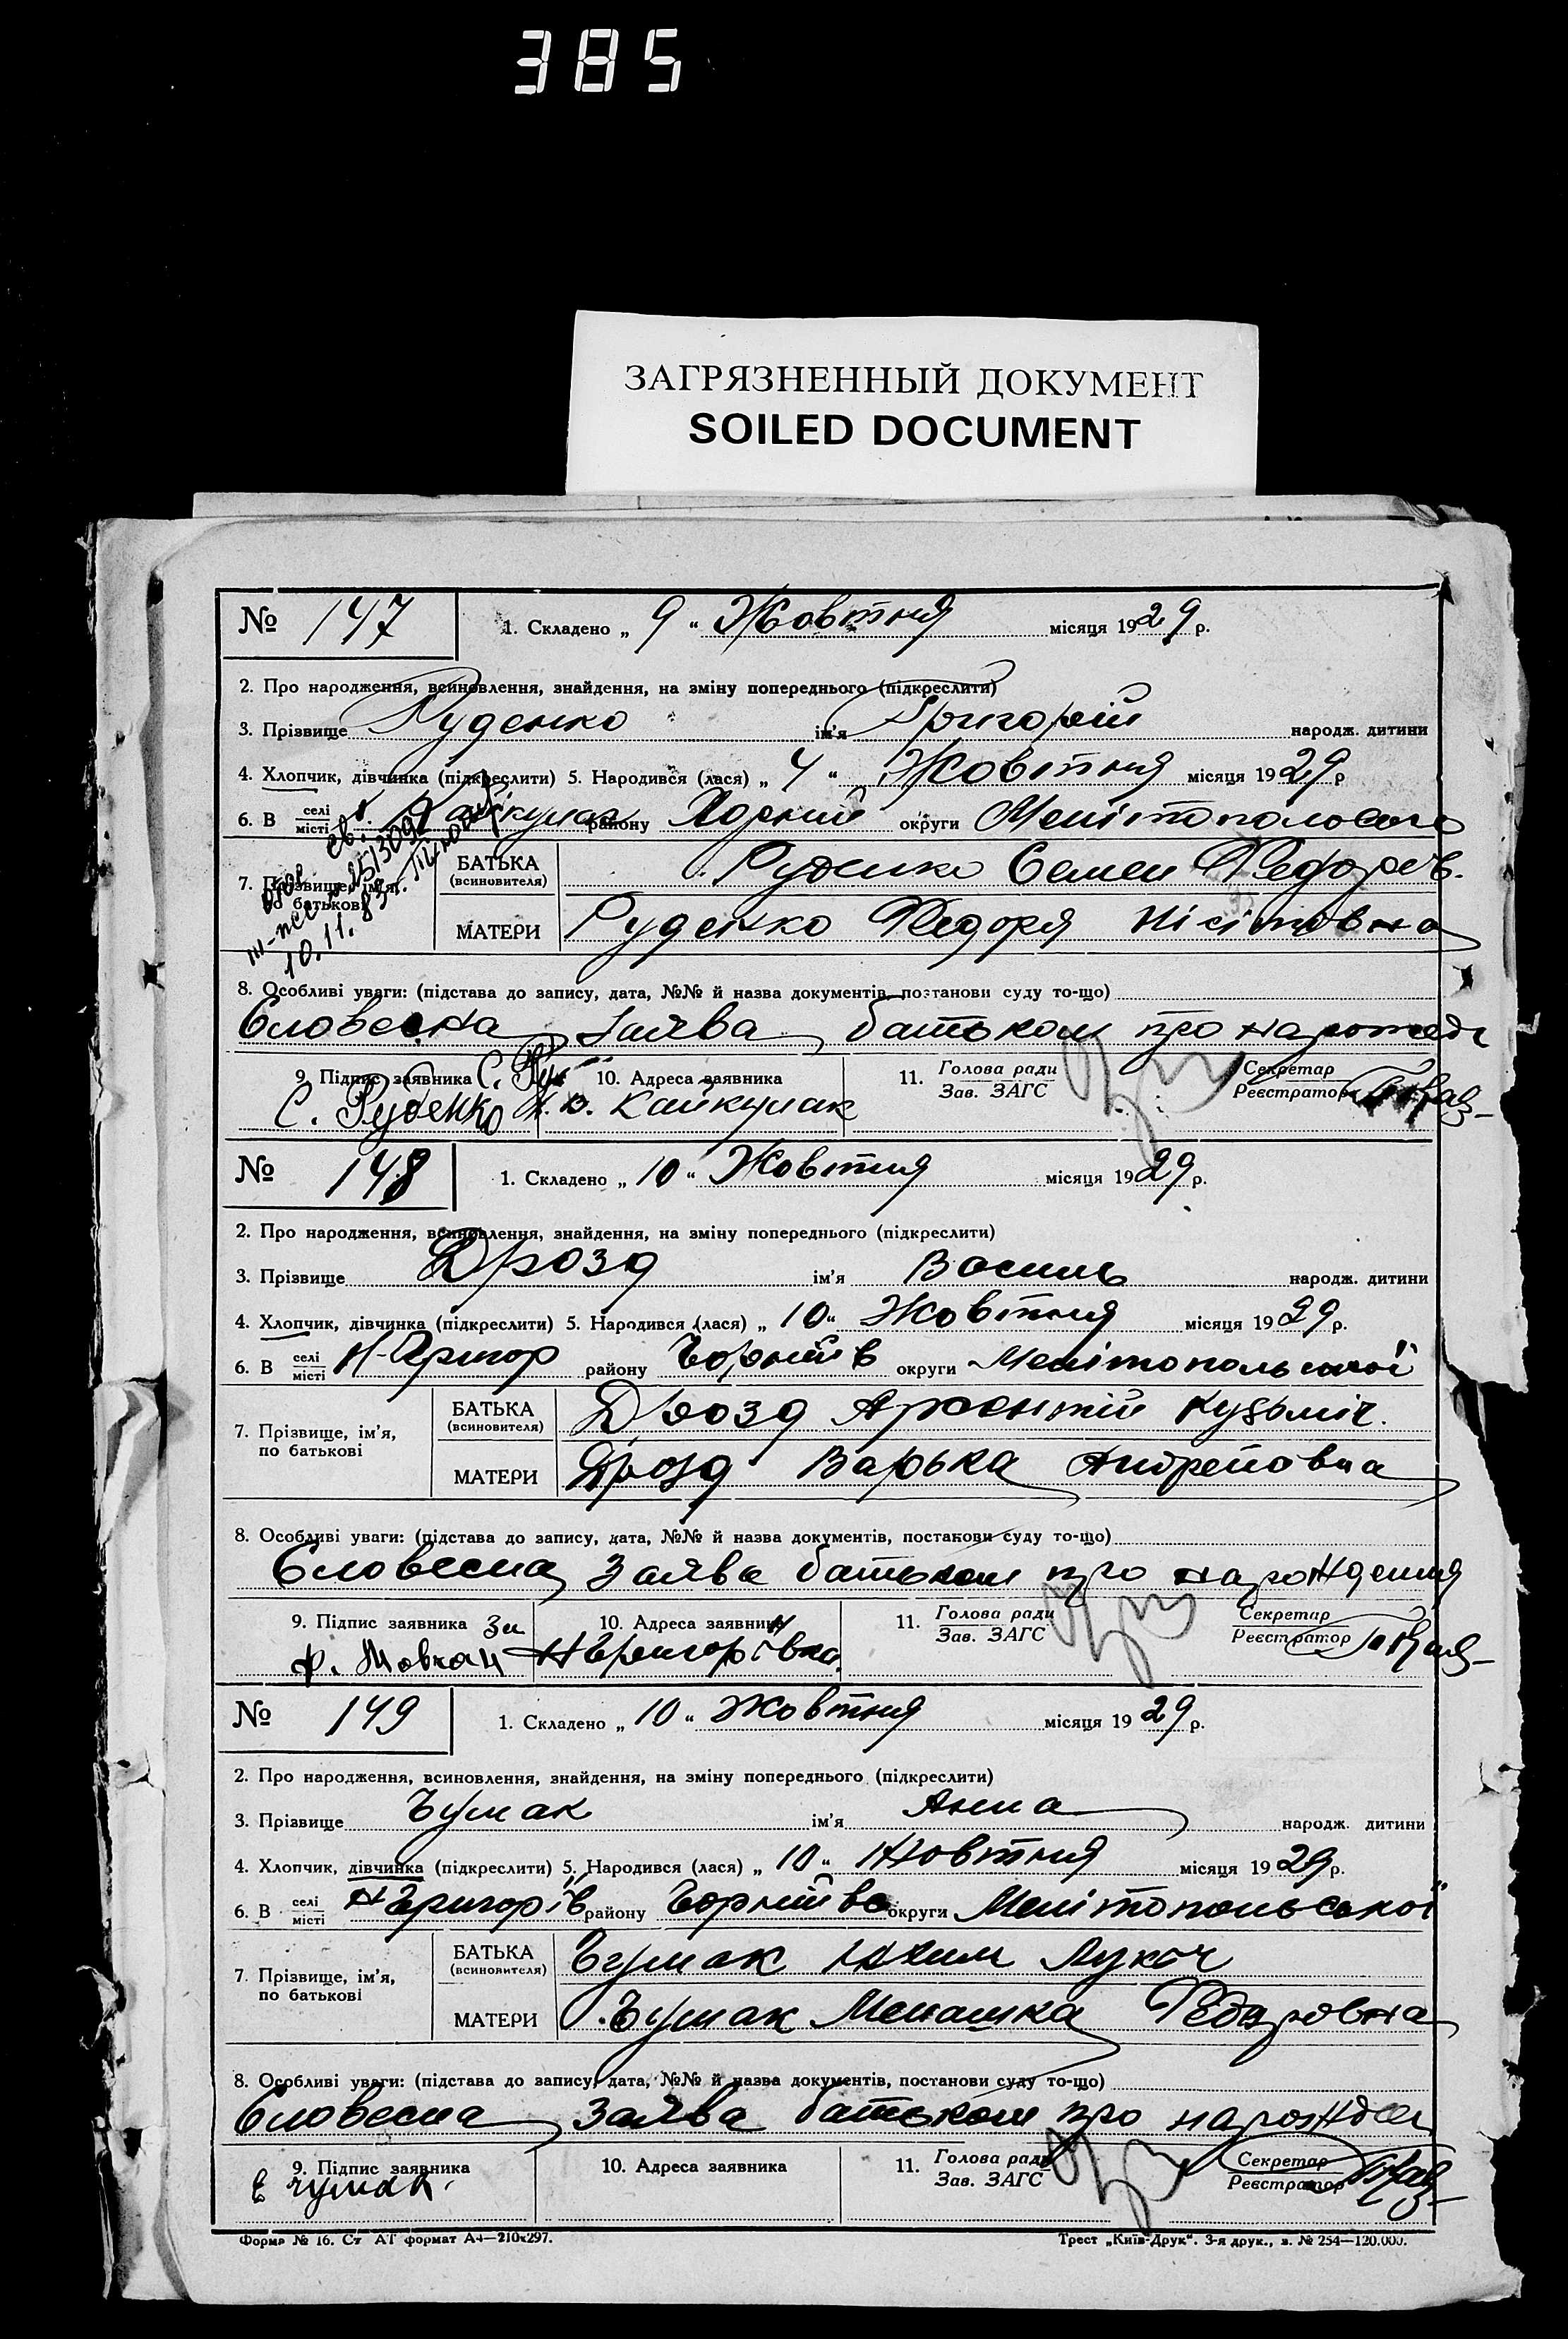 385
ЗАГРЯЗНЕННЫЙ ДОКУМЕНТ
SOILED DOCUMENT
№ 147 1. Складено „ 9 “ Жовтня місяця 1929 р.
2. Про народження, всиновлення, знайдення, на зміну попереднього (підкреслити)
3. Прізвище Руденко ім'я Григорій народж. дитини
4. Хлопчик, дівчинка (підкреслити) 5. Народився (лася) „ 4 “ Жовтня місяця 1929 р
6. В селі місті Кайкулак району округи
10.11.83
7. Прізвище, ім'я, по батькові БАТЬКА (всиновителя) Руденко Семен Федоров.
МАТЕРИ Руденко Федоря
8. Особливі уваги: (підстава до запису, дата, №№ й назва документів, постанови суду то-що)
Словесна заява батьком про нарожед
9. Підпис заявника 10. Адреса заявника 11. Голова ради Зав. ЗАГС Секретар Реєстратор
С. Руденко Кайкулак
№ 148 1. Складено „ 10 “ Жовтня місяця 1929 р.
2. Про народження, всиновлення, знайдення, на зміну попереднього (підкреслити)
3. Прізвище Дрозд ім'я Василь народж. дитини
4. Хлопчик, дівчинка (підкреслити) 5. Народився (лася) „ 10 “ Жовтня місяця 1929 р.
6. В селі місті Н-Григор району Чорніїв округи Мелітопольської
7. Прізвище, ім'я, по батькові БАТЬКА (всиновителя) Дрозд Арсентій Кузьміч.
МАТЕРИ Дрозд Варька Андрейовна
8. Особливі уваги: (підстава до запису, дата, №№ й назва документів, постанови суду то-що)
Словесна заява батьком про нарождения
9. Підпис заявника За 10. Адреса заявника 11. Голова ради Зав. ЗАГС Секретар Реєстратор
ф. Мовчан Н Григорівка
№ 149 1. Складено „ 10 “ Жовтня місяця 1929 р.
2. Про народження, всиновлення, знайдення, на зміну попереднього (підкреслити)
3. Прізвище Чумак ім'я Анна народж. дитини
4. Хлопчик, дівчинка (підкреслити) 5. Народився (лася) „ 10 “ Жовтня місяця 1929 р.
6. В селі місті Н Григорів району округи Мелітопольської
7. Прізвище, ім'я, по батькові БАТЬКА (всиновителя) Чумак Лукич
МАТЕРИ Чумак Мелашка Федоровна
8. Особливі уваги: (підстава до запису, дата, №№ й назва документів, постанови суду то-що)
Словесна заява батьком про нарожден
9. Підпис заявника 10. Адреса заявника 11. Голова ради Зав. ЗАГС Секретар Реєстратор
Є Чумак.
Форма № 16. Ст АТ формат А4—210х297. Трест „Київ-Друк“. 3-я друк., з. № 254—120.000.